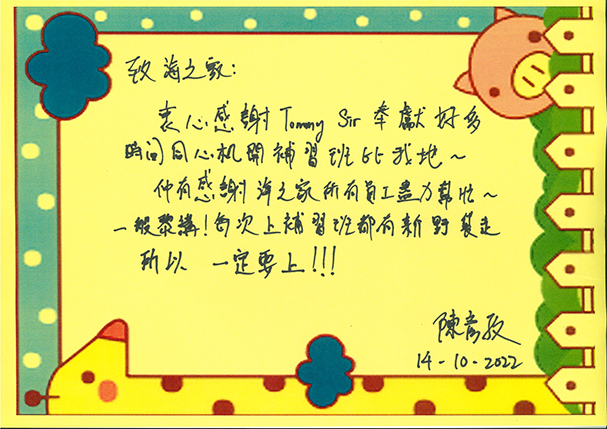 致 海之家：
衷心感謝 Tommy Sir 奉獻好多
時間同心机開補習班比我地～
仲有感謝海之家所有員工盡力幫忙～
一般黎講！每次上補習班都有新野袋走
所以 一定要上!!!
陳彥
14-10-2022